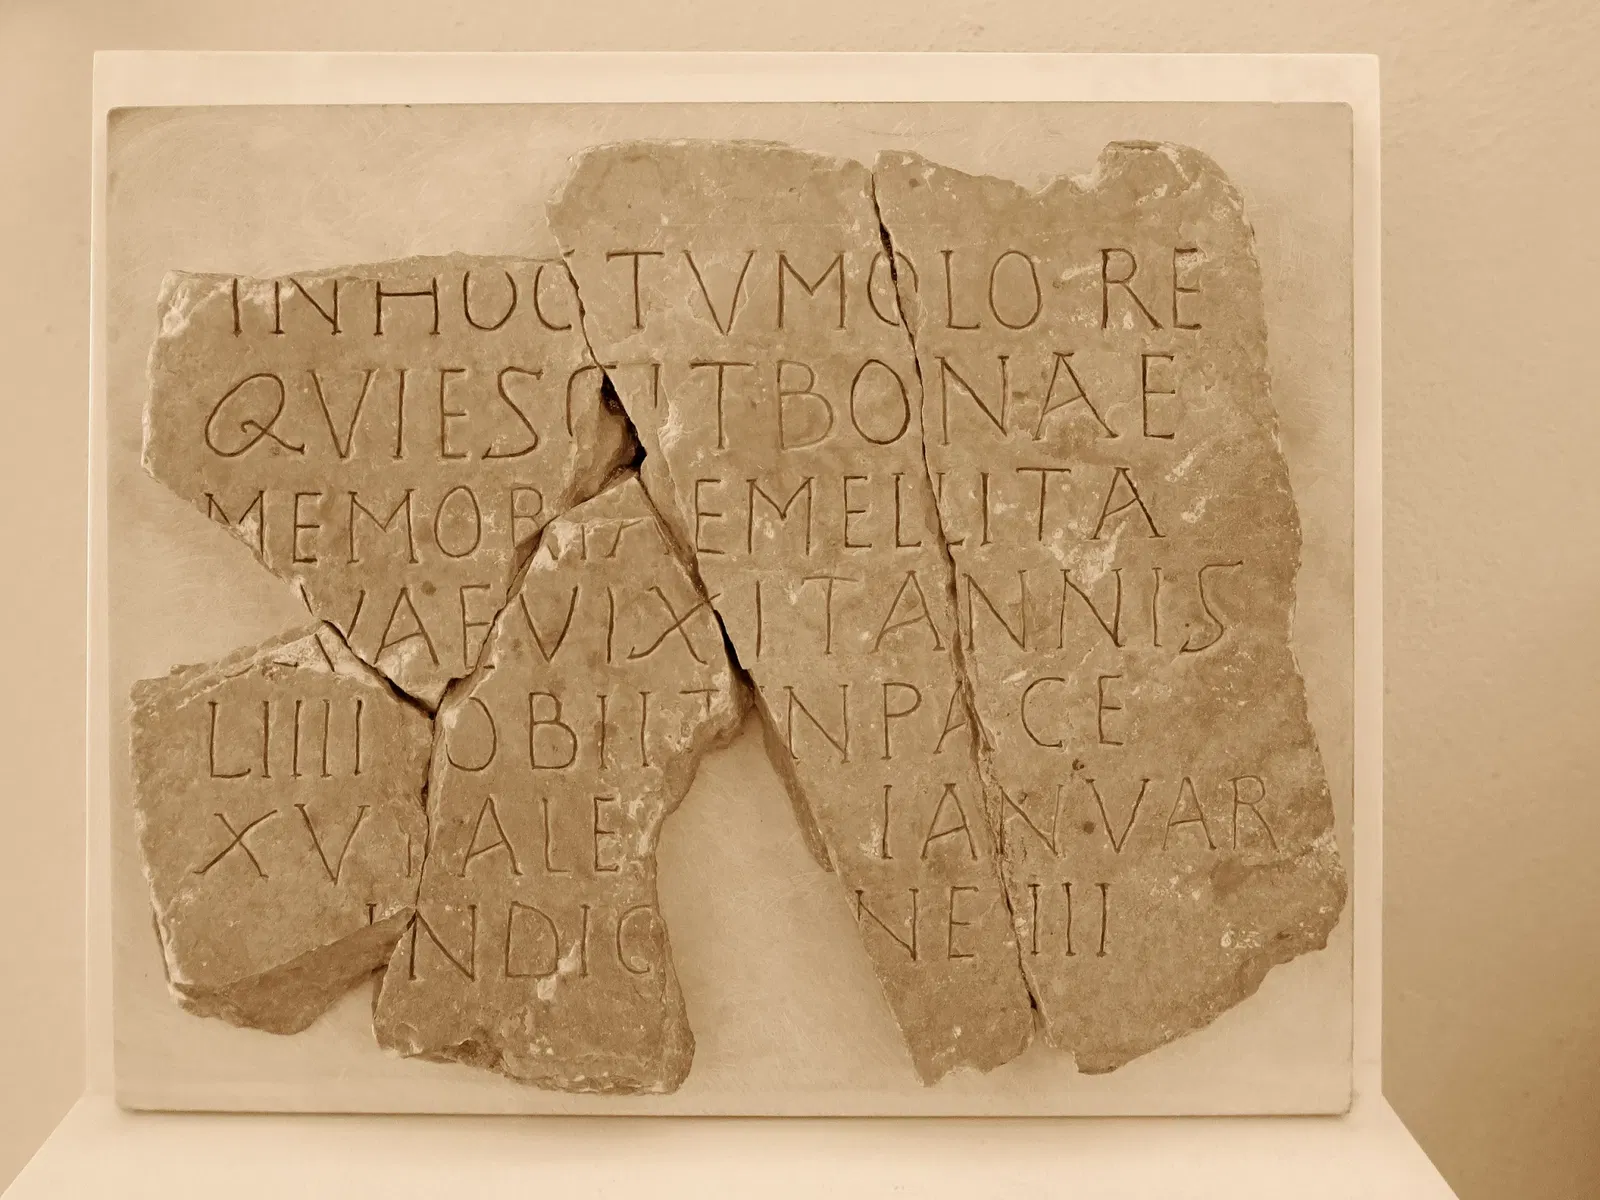 IN HUC TVMOLO RE
QVIESCIT BONAE
MEMORIAE MELLITA
VAE VIXIT ANNIS
LIIII OBIIT IN PACE
XVI ALE IANVAR
INDIC NE III